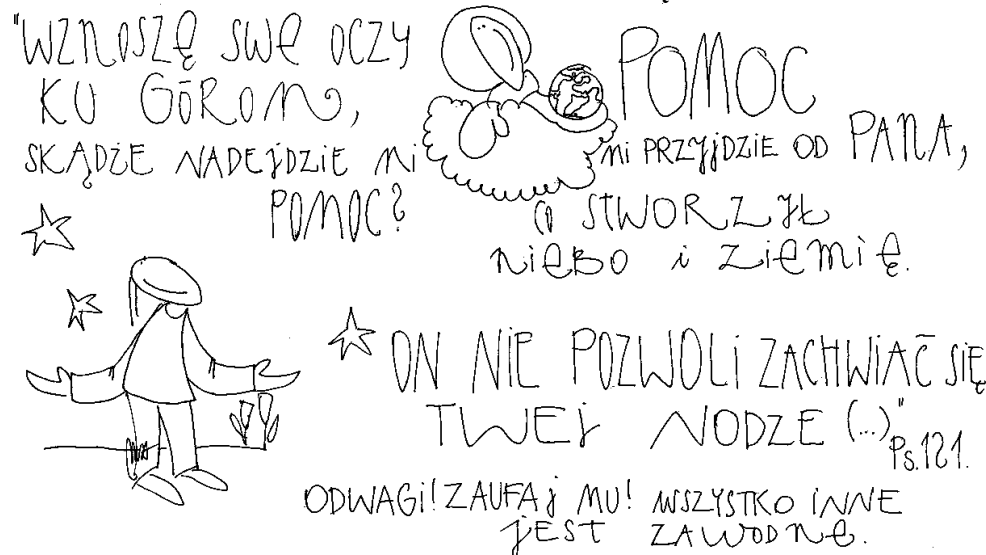 "WZNOSZĘ SWE OCZY
KU GÓROM,
SKĄDŻE NADEJDZIE MI
POMOC?
POMOC
MI PRZYJDZIE OD PANA,
CO STWORZYŁ
NIEBO i ZIEMIĘ.
ON NIE POZWOLI ZACHWIAĆ SIĘ
TWEJ NODZE (...)"
Ps.121.
ODWAGI! ZAUFAJ MU! WSZYSTKO INNE
JEST ZAWODNE.